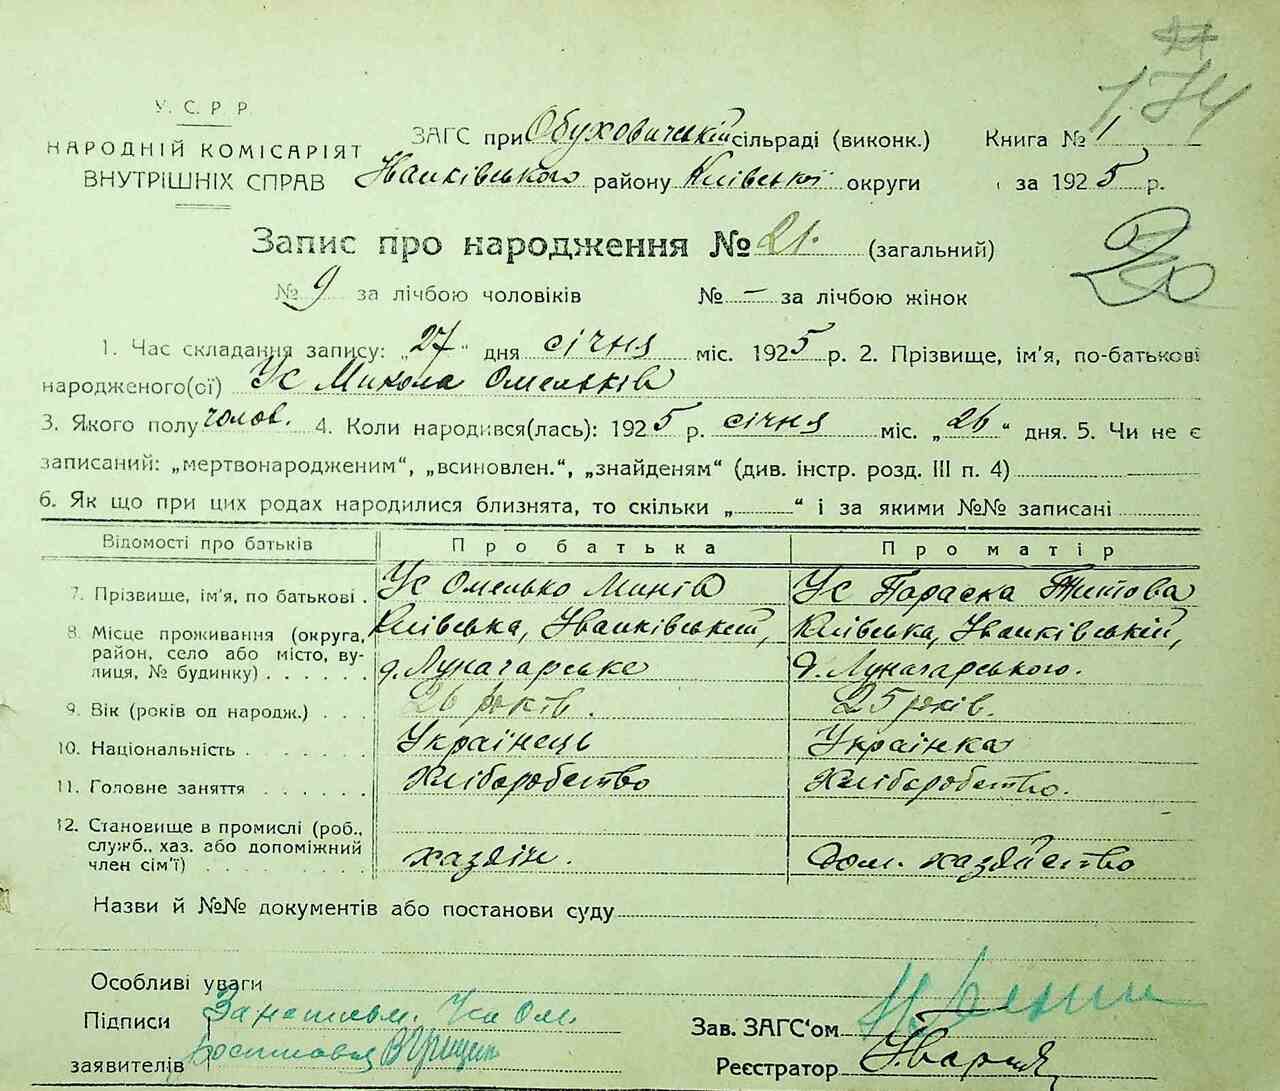 174
У. С. Р. Р.
НАРОДНІЙ КОМІСАРІЯТ
ВНУТРІШНІХ СПРАВ
ЗАГС при Обуховичській сільраді (виконк.) Книга № 1
Іванківського району Київської округи за 1925 р.
Запис про народження № 21. (загальний)
20
№ 9 за лічбою чоловіків № — за лічбою жінок
1. Час складання запису: „27" дня січня міс. 1925 р. 2. Прізвище, ім'я, по-батькові
народженого(ої) Ус Микола Омельків
3. Якого полу чолов. 4. Коли народився(лась): 1925 р. січня міс. „26" дня. 5. Чи не є
записаний: „мертвонародженим", „всиновлен.", „знайденям" (див. інстр. розд. III п. 4)
6. Як що при цих родах народилися близнята, то скільки „ " і за якими №№ записані
Відомості про батьків Про батька Про матір
7. Прізвище, ім'я, по батькові . Ус Омелько Минів Ус Параска Титова
8. Місце проживання (округа, Київська, Іванківський, Київська, Іванківській,
район, село або місто, ву- д. Луначарське д. Луначарського.
лиця, № будинку) . . . . . .
9. Вік (років од народж.) . . . 26 років. 25 років.
10. Національність . . . . . . . Українець Українка
11. Головне заняття . . . . . . Хліборобство Хліборобство.
12. Становище в промислі (роб.,
служб., хаз. або допоміжний хазяїн. Дом. хазяйство
член сім'ї) . . . . . . . . .
Назви й №№ документів або постанови суду
Особливі уваги
Підписи
Зав. ЗАГС'ом
заявителів
Реєстратор